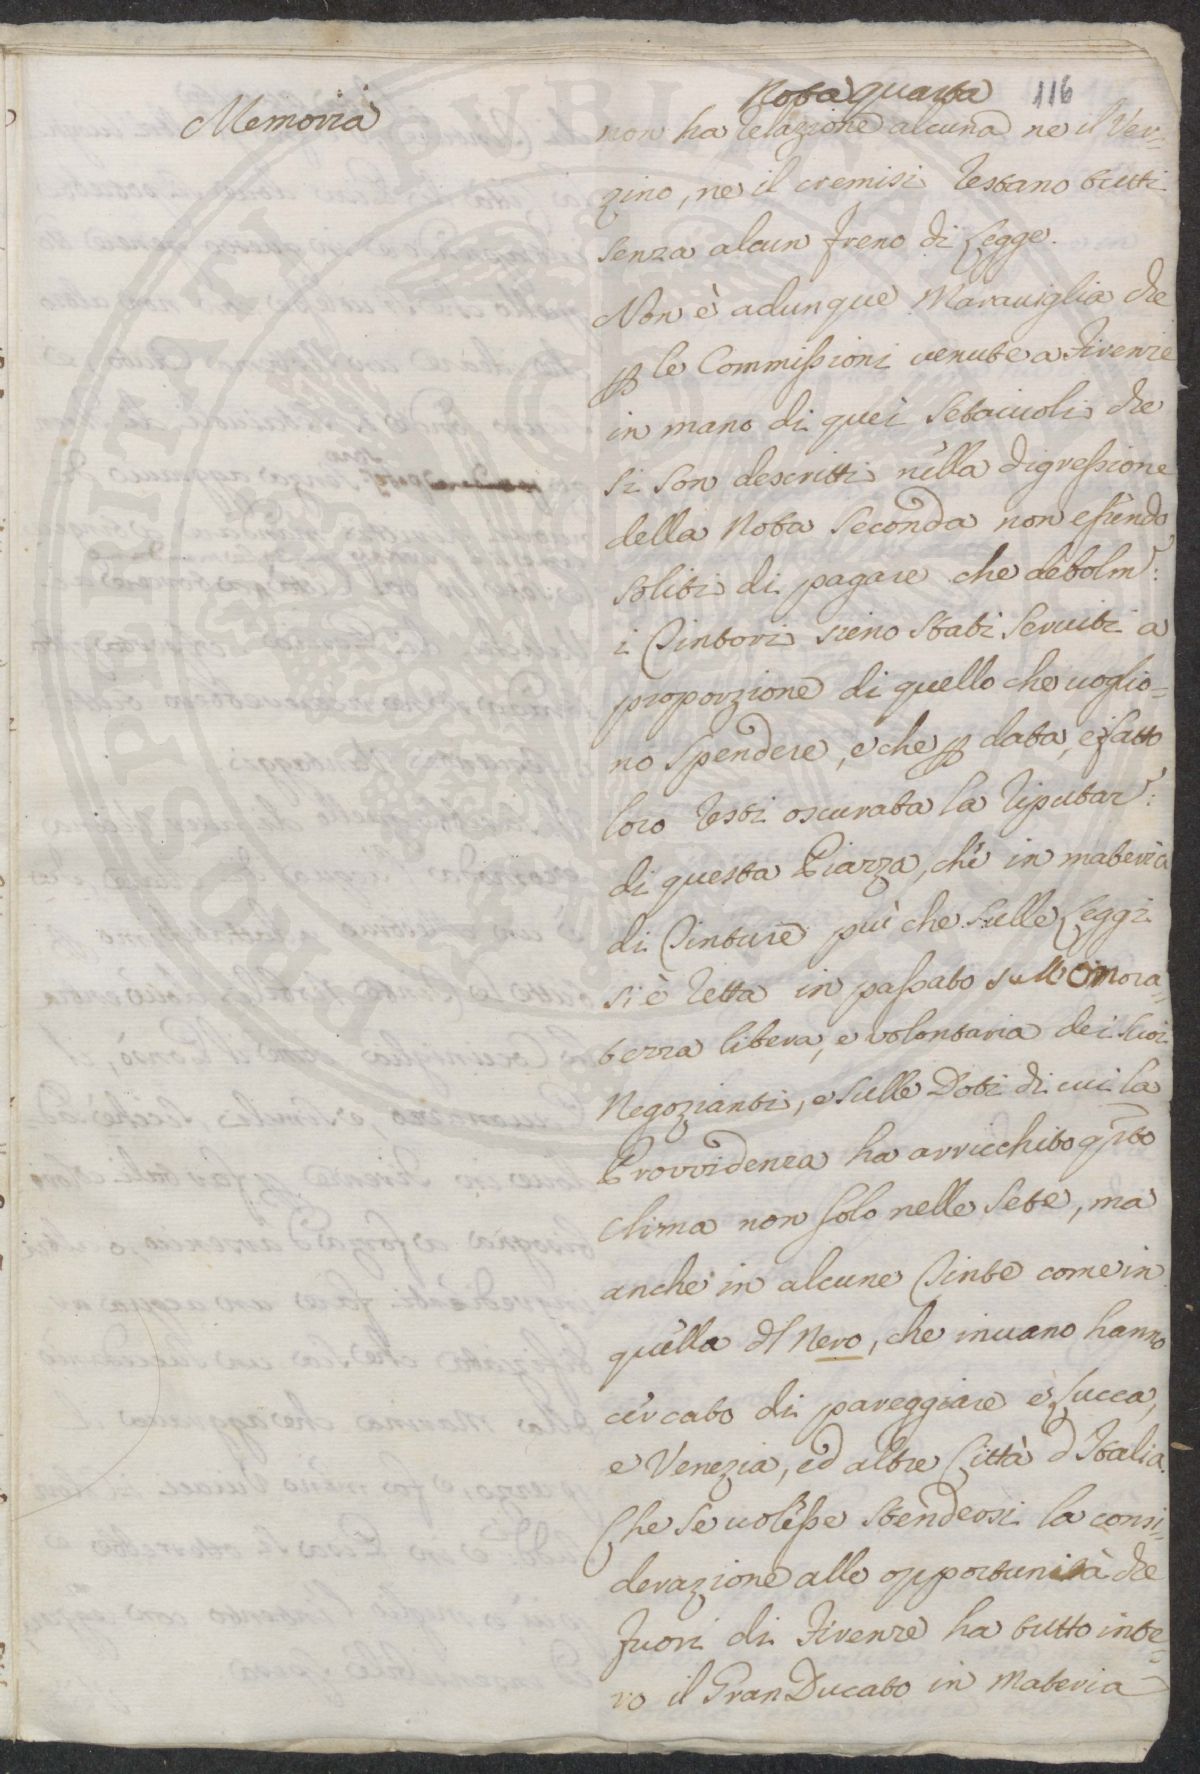 Memoria
Nota quarta 116
non ha relazione alcuna ne il Ver=
zino, ne il cremisi restano tutti
senza alcun freno di Legge.
Non è adunque Maraviglia che
p le Commissioni venute a Firenze
in mano di quei Setaiuoli che
si son descritti nella digressione
della Nota Seconda non essendo
soliti di pagare che debolm:
i Tintori sieno stati serviti a
proporzione di quello che voglio=
no spendere, e che p data, e fatto
loro resti oscurata la riputaz:
di questa Piazza, che in materia
di Tinture più che sulle Leggi
si è retta in passato sull'Onora=
tezza libera, e volontaria dei suoi
Negozianti, e sulle Doti di cui la
Provvidenza ha arricchito qsto
Clima non solo nelle Sete, ma
anche in alcune Tinte come in
quella dl Nero, che invano hanno
cercato di pareggiare e Lucca,
e Venezia, ed altre Città d'Italia.
Che se volesse stendersi la consi=
derazione alle opportunità che
fuori di Firenze ha tutto inte=
ro il Gran Ducato in Materia
PROSPERITATI PUBLICAE